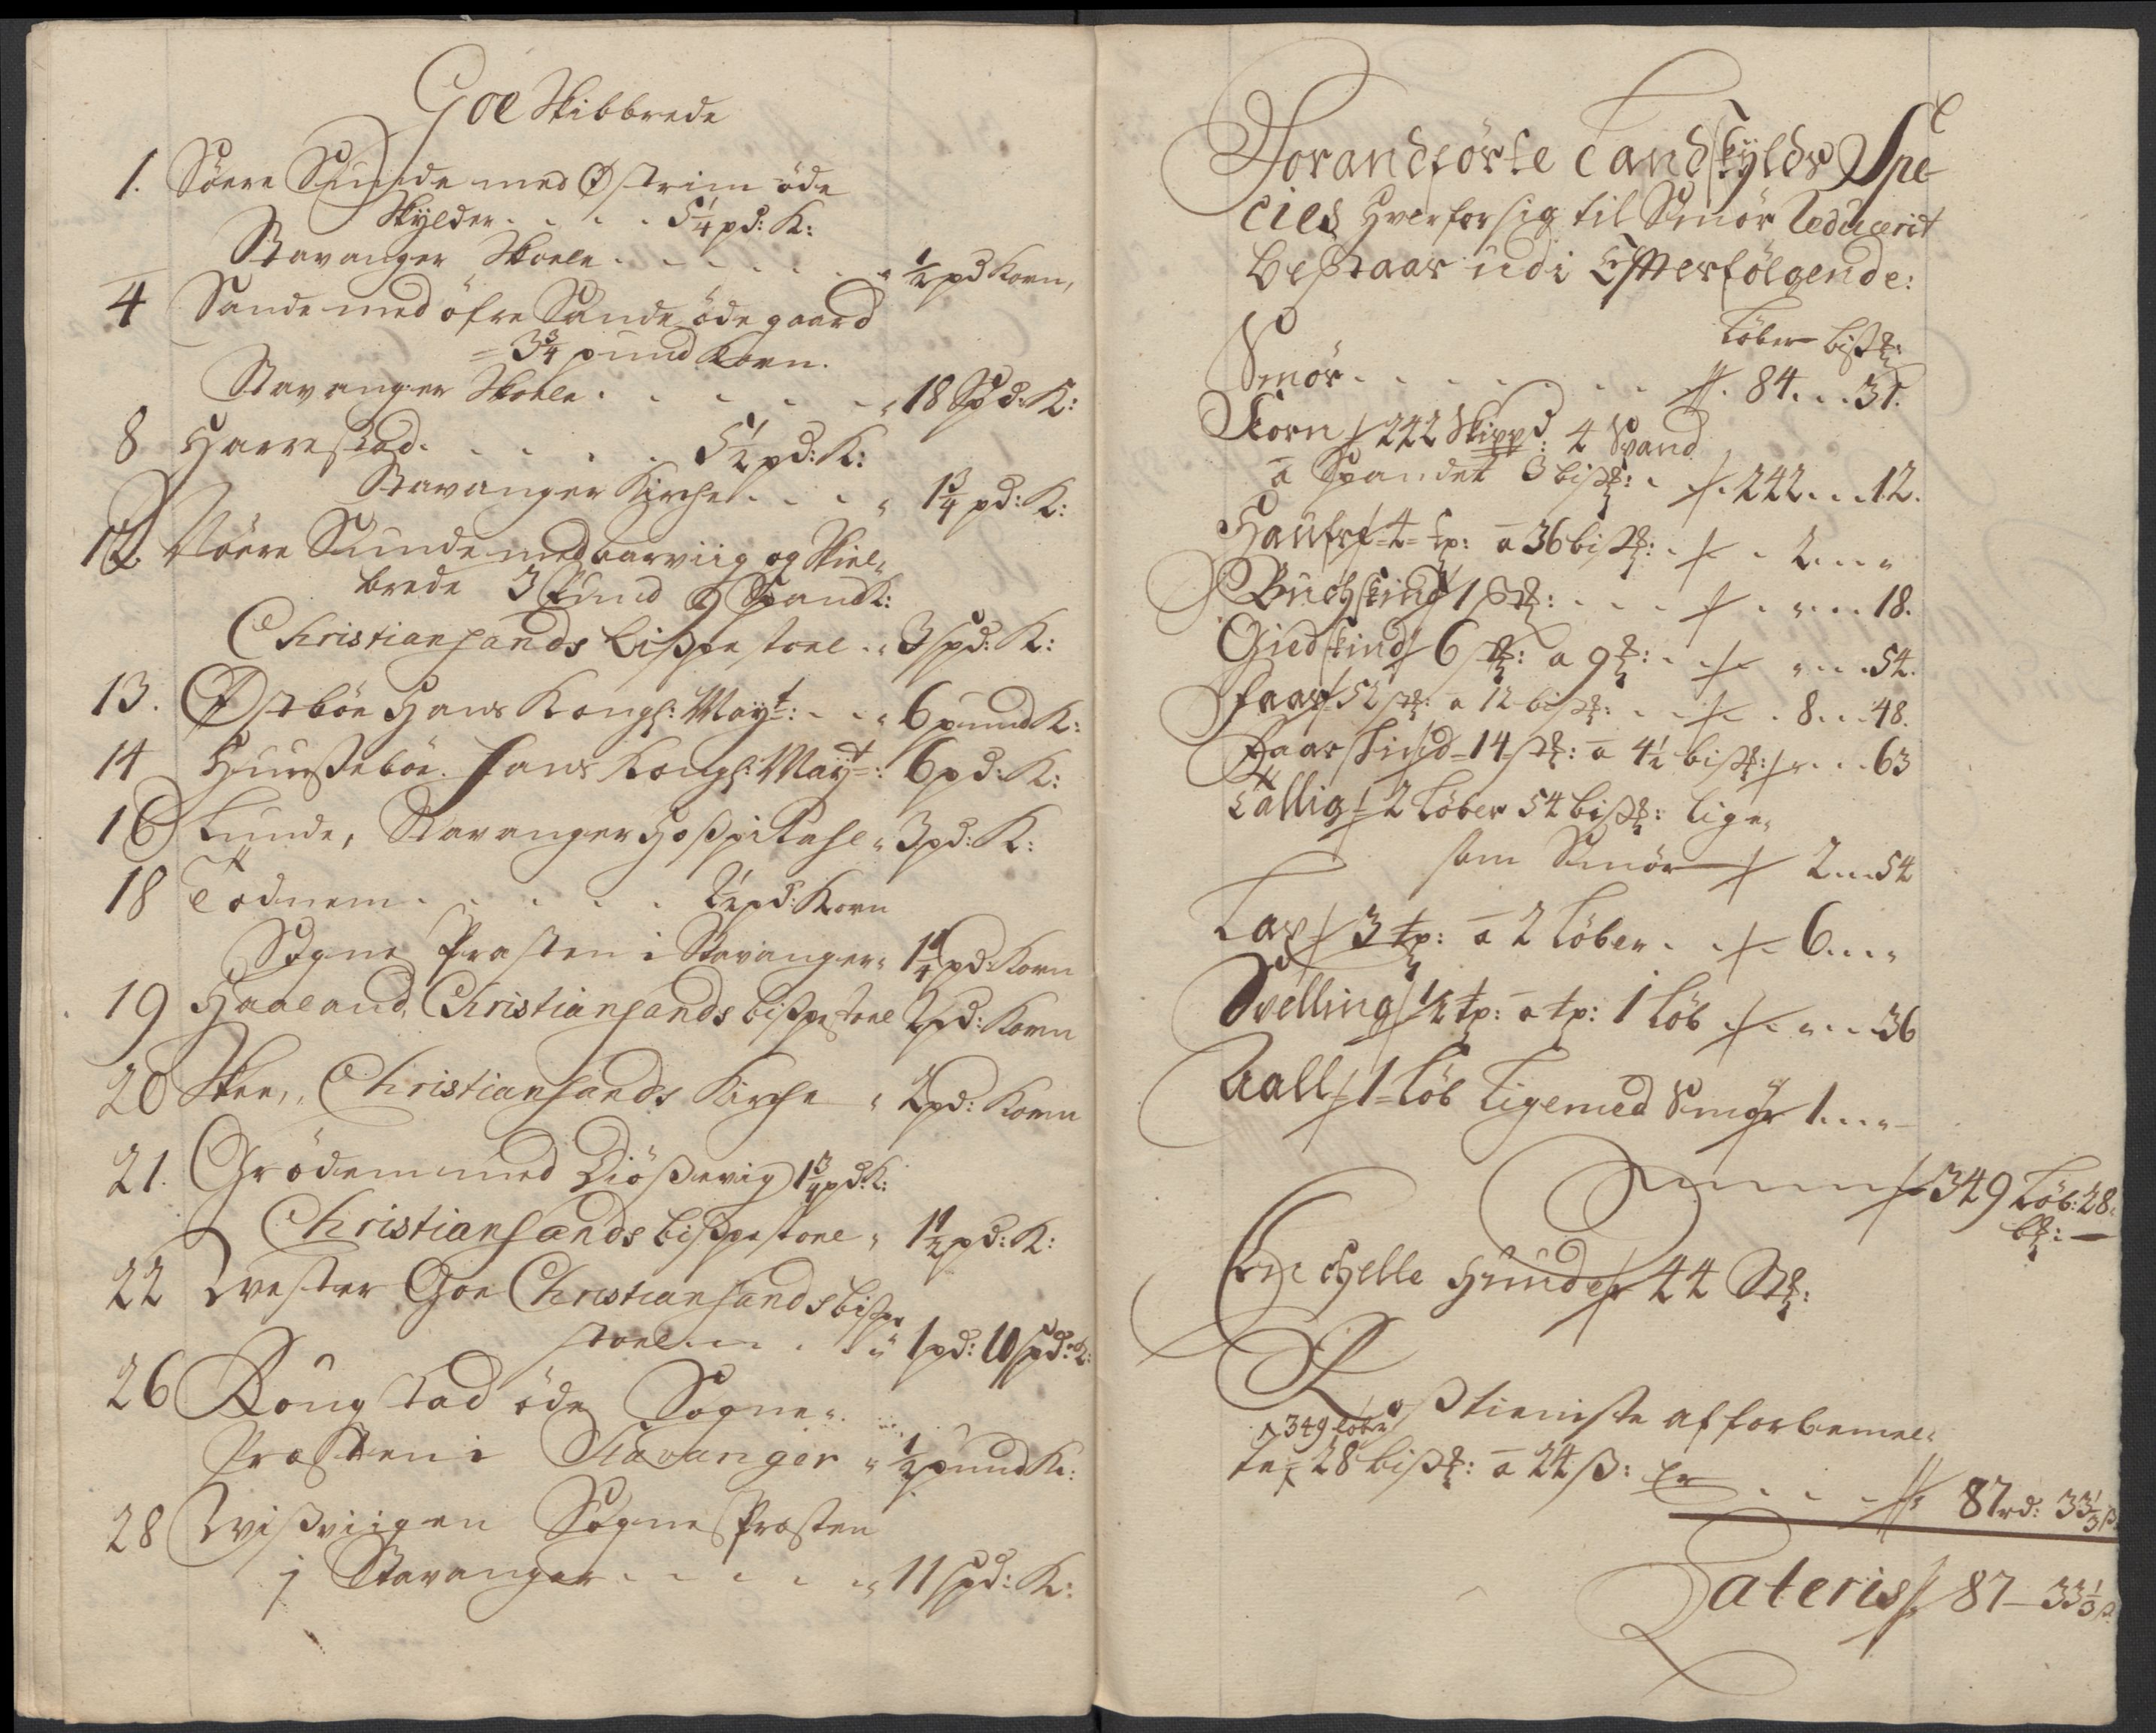 Goe Skibbrede
1. Söere Sunde med Østrim öde
Skylder . . . . 5 1/4 pd: K:
Stavanger Skoele . . . . . . " 1/2 pd Korn,
4 Sande med öfre Sande öde gaard
= 3 3/4 pund Korn.
Stavanger Skoele . . . . . " 18 Spd: K:
8 Harrestad . . . . . 5 1/2 pd: K:
Stavanger Kirche . . . " 1 3/4 pd: K:
12. Nörre Sunde med aarviig og Skiel-
brede 3 Pund 9 Spand K:
Christiansands bispestoel . " 3 spd: K:
13. Østböe Hans Kongl: Mayt: . . " 6 pund K:
14 Huusseböe. Hans Kongl: Mayt: 6 pd: K:
16 Lunde, Stavanger Hospitahl " 3 pd: K:
18 Todnem . . . . . 2 1/2 pd: Korn
Sogne Præsten i Stavanger " 1 1/4 pd: Korn
19 Haaland, Christiansands bispestoel 2 pd: Korn
20 Skee, Christiansands Kirche " 2 pd: Korn
21. Grödem med Diössevig 1 3/4 pd: K:
Christiansands bispestoel " 1 1/2 pd: K:
22 Wester Goe Christiansands bispe
stoel . . . . " 1 pd: 10 spd: K:
26 Kongstad öde Sogne-
Præsten i Stavanger " 1/2 pund K:
28 Wissviigen Sogne Præsten
i Stavanger . . . . . " 11 spd: K:
Forandförte Landskylds Spe-
cies Hver for sig til Smör Reducerit
bestaar udi Effterfölgende:
Löber bispd:
Smör . . . . . . . . 84 . . . 31.
Korn 242 Skippd: 4 Spand
a Spandet 3 bispd: . 242 . . . 12.
Haufre 4 tp: a 36 bispd: . 2 . . . "
Buchskind 1 st: . . . . " . . . 18.
Giedskind 6 st: a 9 : . . " . . . 54.
Faar 52 st: a 12 bispd: . . . 8 . . . 48.
Faar Skind 14 st: a 4 1/2 bispd: " . . . 63
Tallig 2 Löber 54 bispd: lige-
som Smör 2 . . . 54
Lax 3 tp: a 2 Löber . . 6 . . . "
Qvelling 1/2 tp: a tp: 1 Löb . " . . . 36
Aall 1 Löb Lige med Smör 1 . . . "
Summa 349 Löb: 28
b:
Engelle Hunder 44 St:
Rosstienniste af forbemel-
te 349 löber 28 bispd: a 24 ß: Er . . . 87 rd: 33 1/3 ß
Lateris 87 - 33 1/3 ß